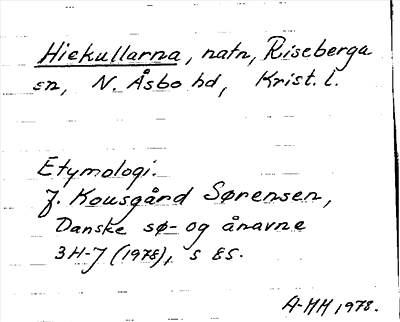 Hiekullarna, natn, Riseberga
sn, N. Åsbo hd, Krist. l.
Etymologi.
J. Kousgård Sørensen,
Danske sø- og ånavne
3 H-J (1978), s 85.
A-MH 1978.